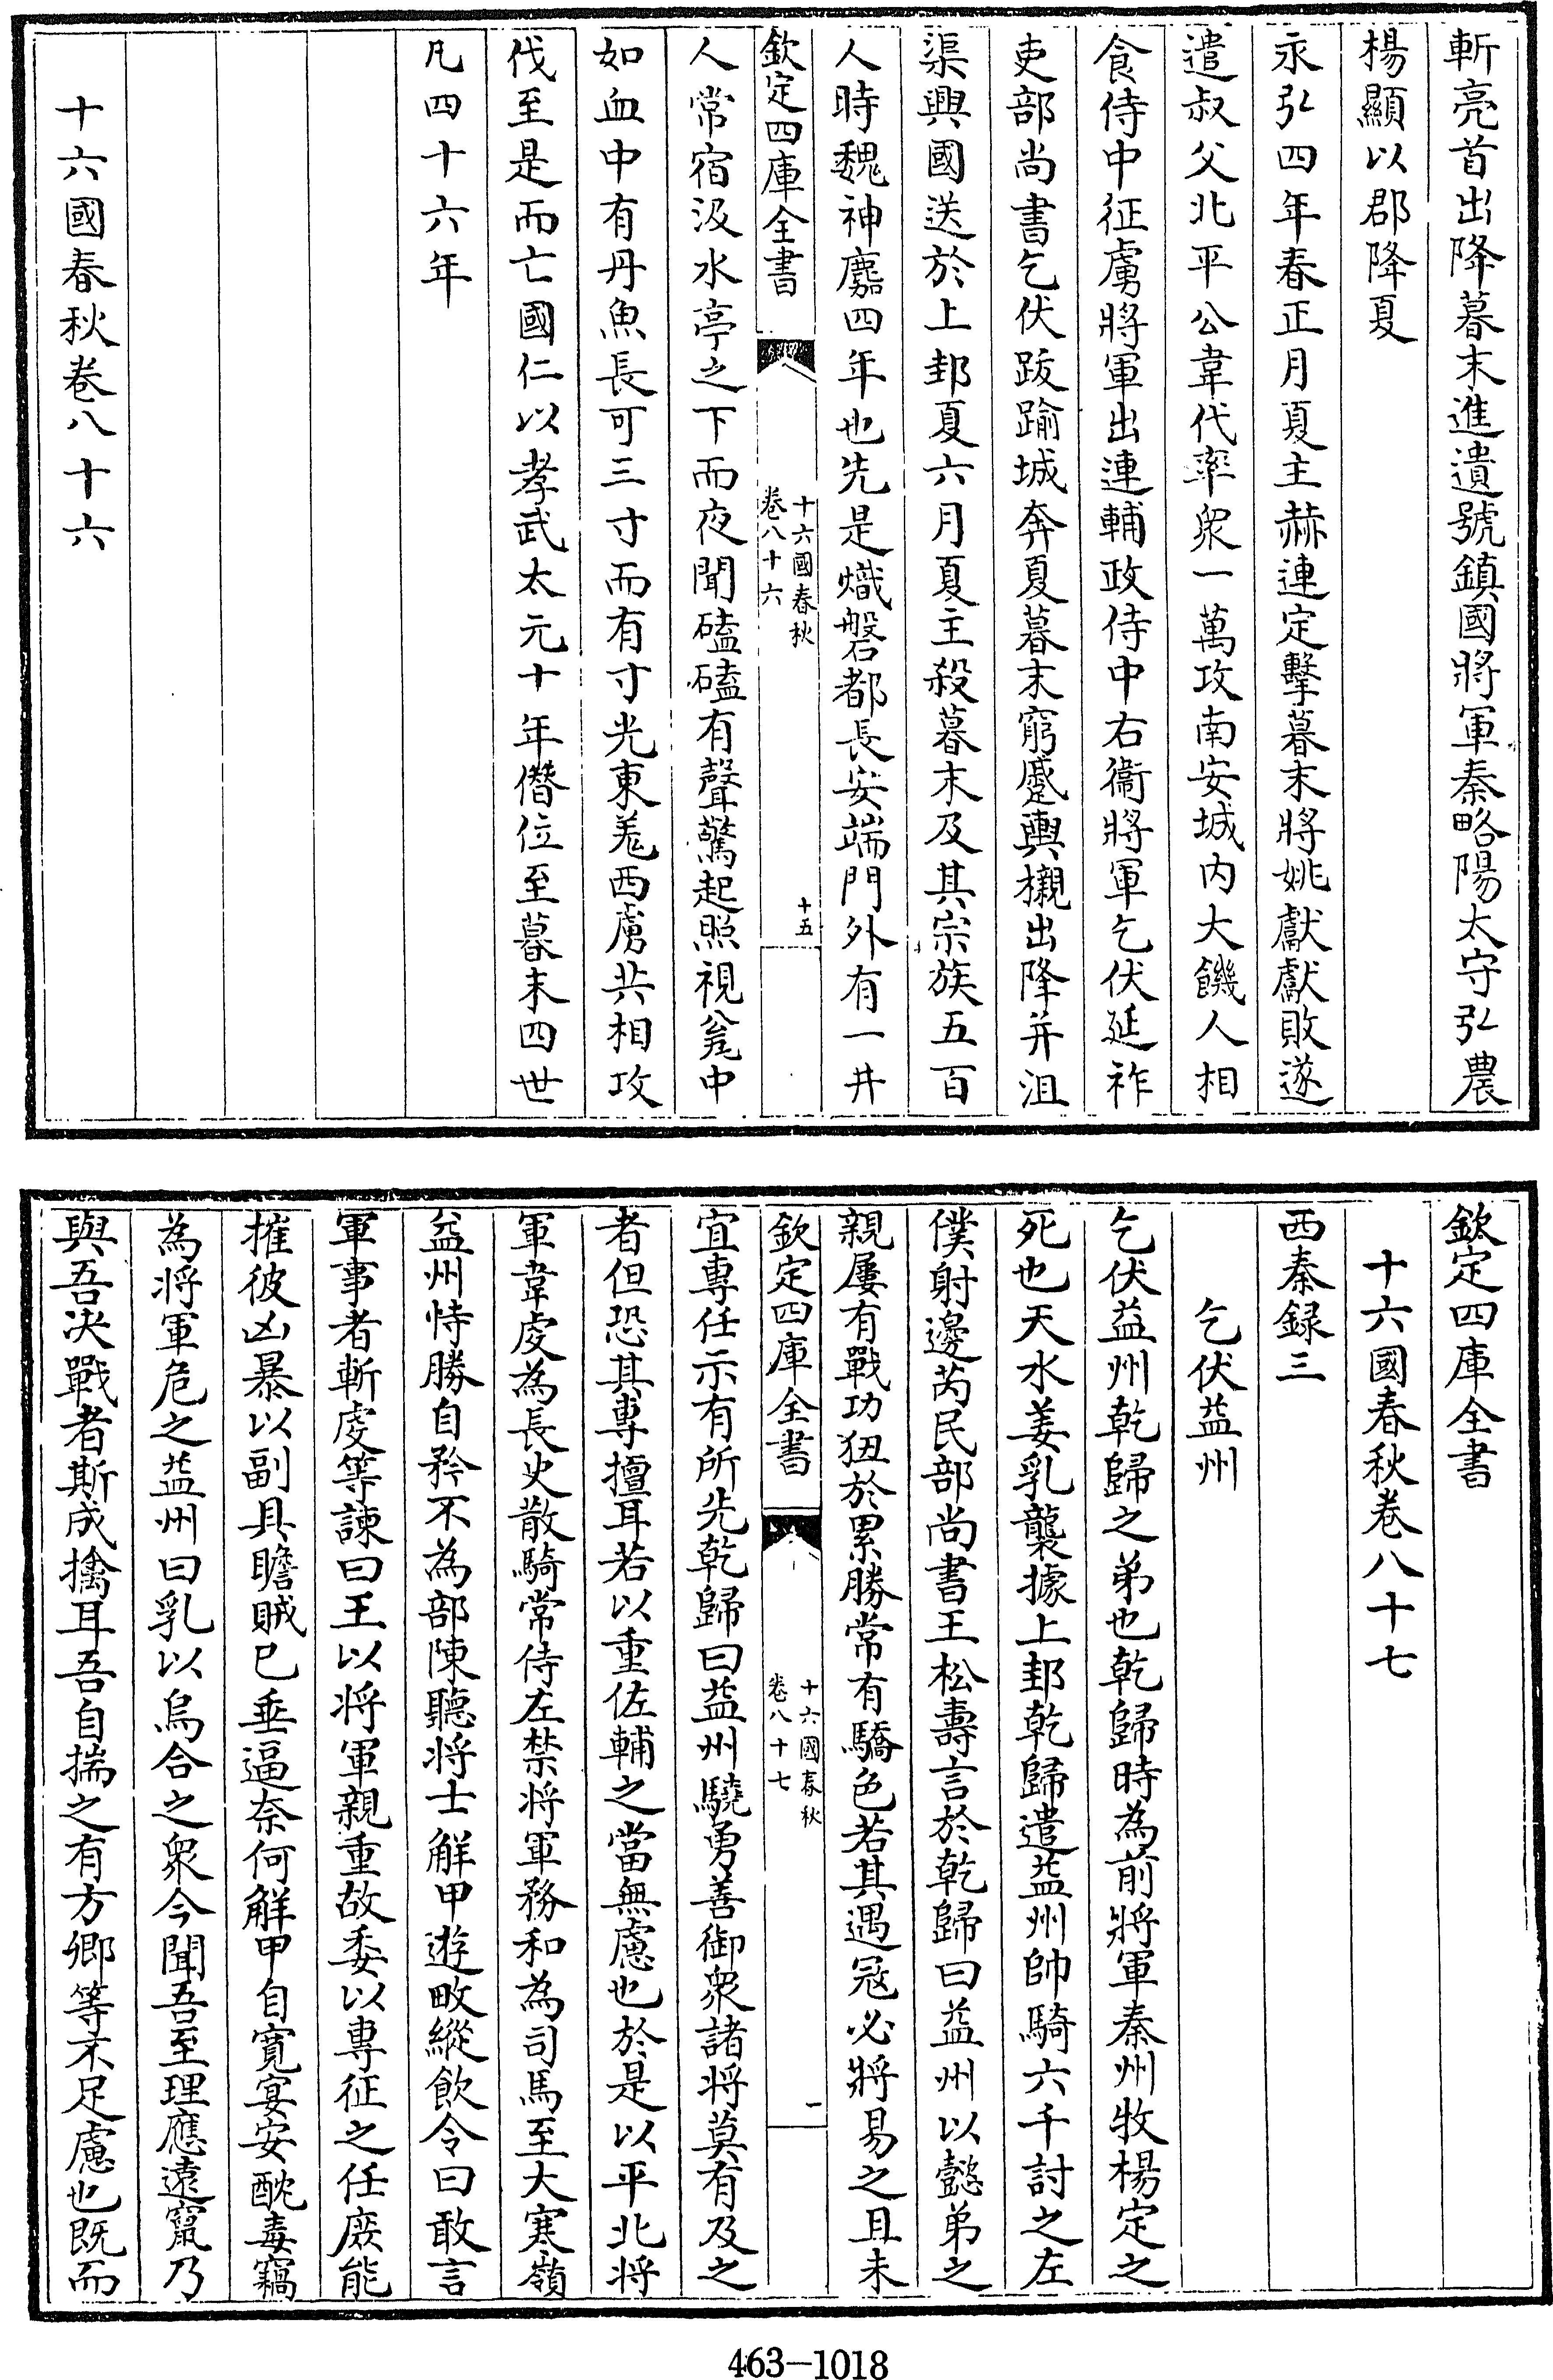 斬亮首出降暮末進遺號鎮國將軍秦略陽太守弘農
楊顯以郡降夏
永弘四年春正月夏主赫連定擊暮末將姚獻獻敗遂
遣叔父北平公韋代率衆一萬攻南安城内大饑人相
食侍中征虜將軍出連輔政侍中右衞將軍乞伏延祚
吏部尚書乞伏跋踰城奔夏暮末窮蹙輿櫬出降并沮
渠興國送於上邽夏六月夏主殺暮末及其宗族五百
人時魏神䴥四年也先是熾磐都長安端門外有一井
欽定四庫全書
十六國春秋
卷八十六
十五
人常宿汲水亭之下而夜聞磕磕有聲驚起照視瓮中
如血中有丹魚長可三寸而有寸光東羗西虜共相攻
伐至是而亡國仁以孝武太元十年僭位至暮末四世
凡四十六年
十六國春秋卷八十六
欽定四庫全書
十六國春秋卷八十七
西秦録三
乞伏益州
乞伏益州乾歸之弟也乾歸時為前將軍秦州牧楊定之
死也天水姜乳襲據上邽乾歸遣益州帥騎六千討之左
僕射邊芮民部尚書王松壽言於乾歸曰益州以懿弟之
親屢有戰功狃於累勝常有驕色若其遇冦必將易之且未
欽定四庫全書
十六國春秋
卷八十七
一
宜專任示有所先乾歸曰益州驍勇善御衆諸将莫有及之
者但恐其專擅耳若以重佐輔之當無慮也於是以平北将
軍韋虔為長史散騎常侍左禁将軍務和為司馬至大寒嶺
益州恃勝自矜不為部陳聽将士解甲遊畋縱飲令曰敢言
軍事者斬虔等諫曰王以将軍親重故委以專征之任庶能
摧彼凶暴以副具瞻賊已垂逼奈何解甲自寛宴安酖毒竊
為将軍危之益州曰乳以烏合之衆今聞吾至理應遠竄乃
與吾决戰者斯成擒耳吾自揣之有方卿等不足慮也既而
463-1018